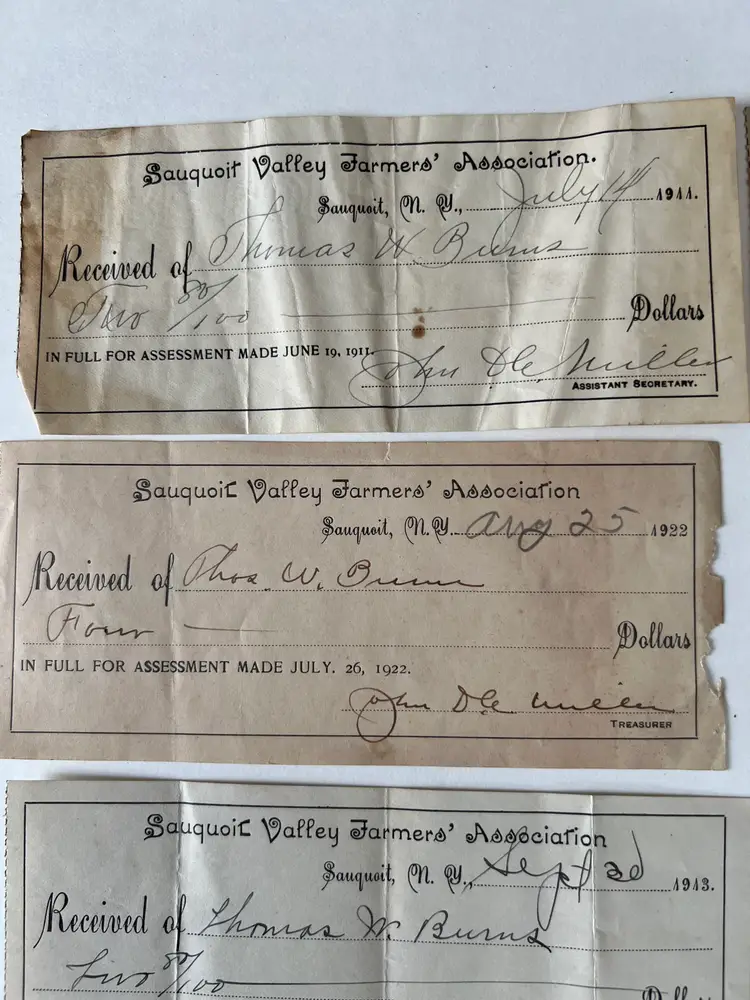 Sauquoit Valley Farmers' Association.
Sauquoit, N. Y., July 14 1911.
Received of Thomas W. Burns
Two 80/100 Dollars
IN FULL FOR ASSESSMENT MADE JUNE 19, 1911.
John De Miller
ASSISTANT SECRETARY.
Sauquoit Valley Farmers' Association
Sauquoit, N.Y. Aug 25 1922
Received of Thos. W. Burns
Four Dollars
IN FULL FOR ASSESSMENT MADE JULY. 26, 1922.
John De Miller
TREASURER
Sauquoit Valley Farmers' Association
Sauquoit, N. Y., Sept 1913.
Received of Thomas W. Burns
Two 80/100 Doll